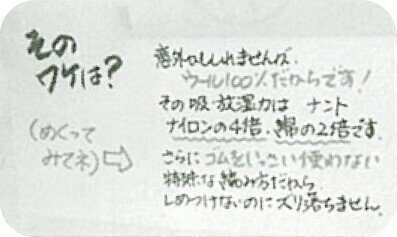 その
ワケは?
(めくって
みてネ)⇨
意外かもしれませんが、
ウール100%だからです!
その吸・放湿力は ナント
ナイロンの4倍、綿の2倍です。
さらにゴムをいっさい使わない
特殊な編み方だから
しめつけないのにズリ落ちません。